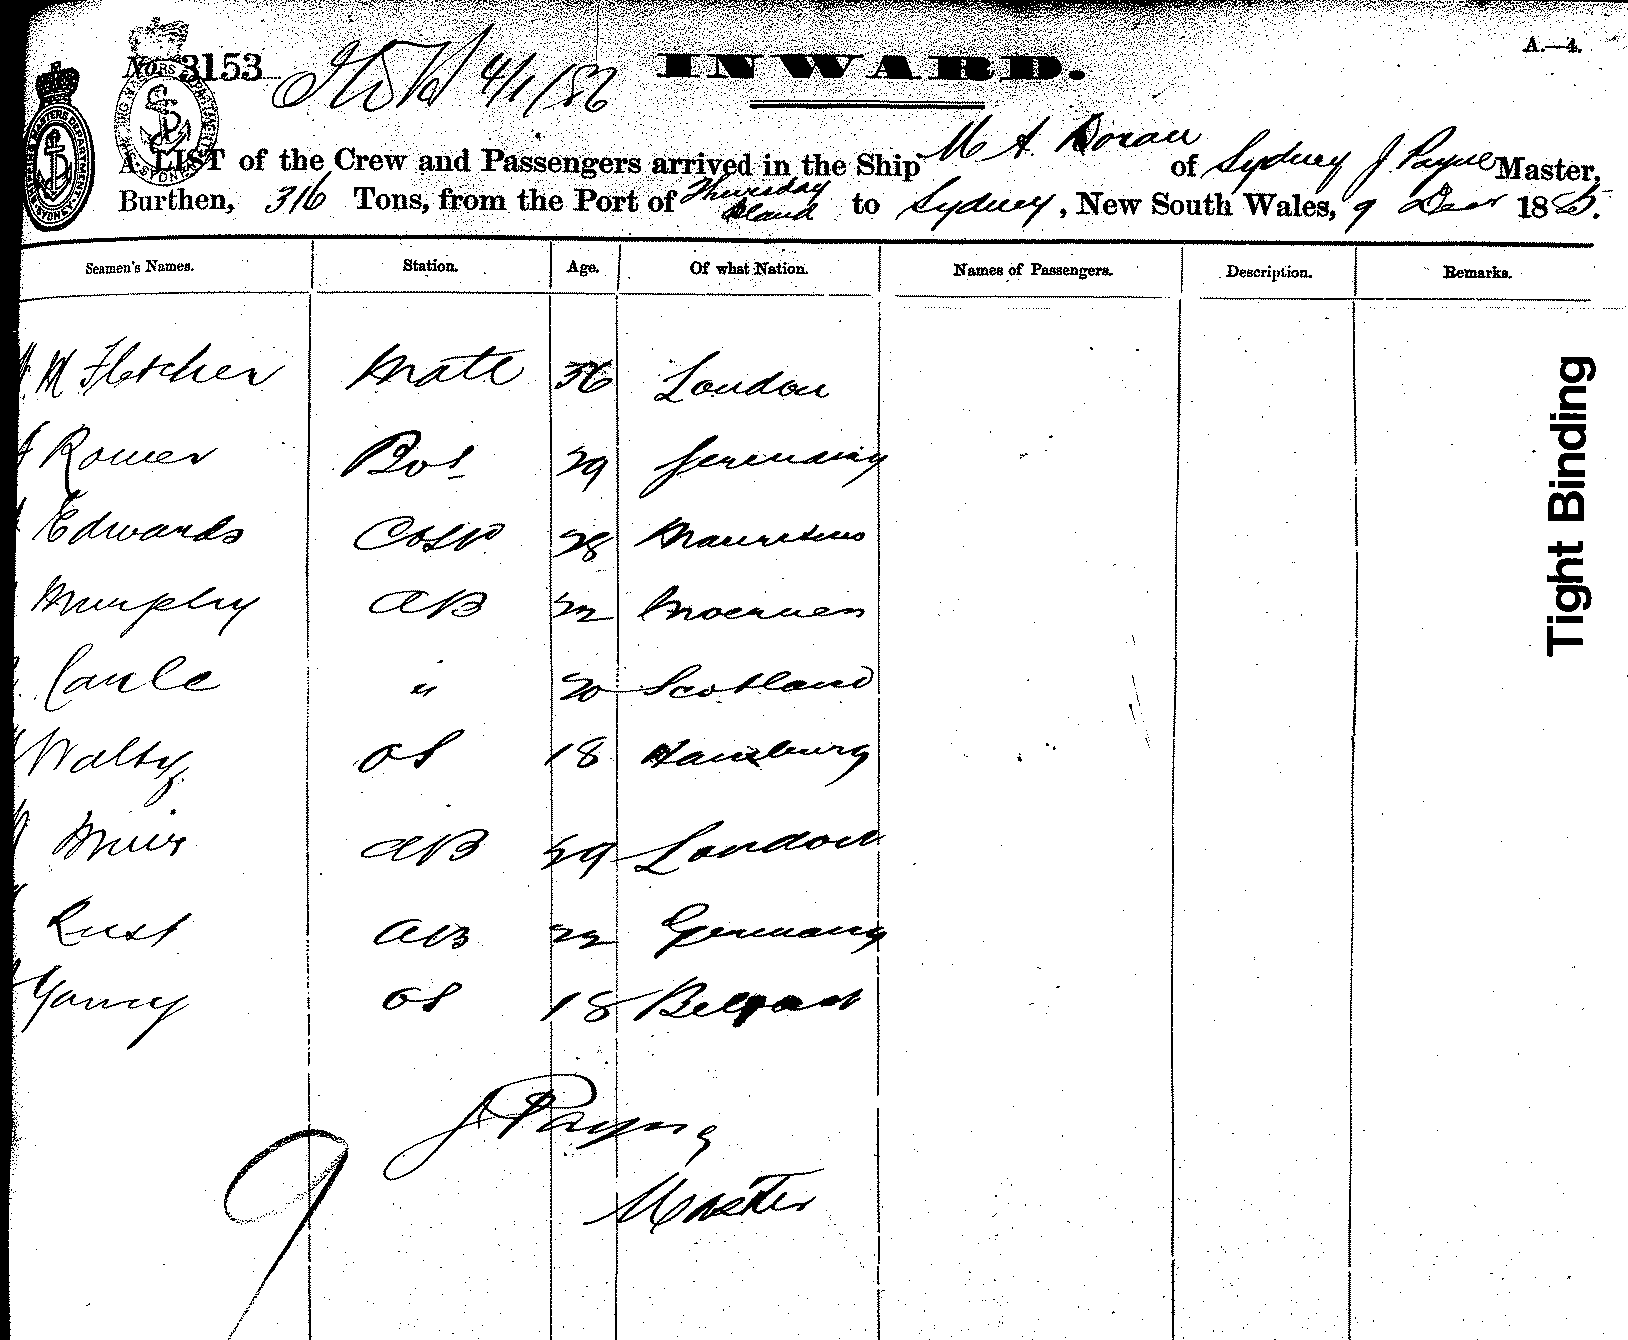 No. 3153 4/1/86 INWARD. A.—4.
A LIST of the Crew and Passengers arrived in the Ship M A Doran of Sydney J Payne Master,
Burthen, 316 Tons, from the Port of Thursday Island to Sydney, New South Wales, 9 Decr 1885.
Seamen's Names. Station. Age. Of what Nation. Names of Passengers. Description. Remarks.
M Fletcher Mate 36 London
Romer Bos 29 Germany
Edwards Cook 28 Mauritius
Murphy AB 22
" 20 Scotland
OS 18 Hamburg
Muir AB 29 London
Rust AB 22 Germany
OS 18 Belfast
J Payne
Master
9
Tight Binding